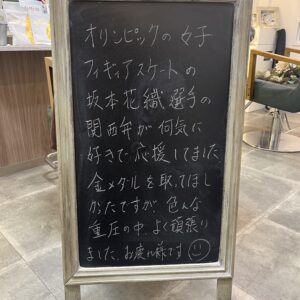 オリンピックの女子
フィギィアスケートの
坂本花織選手の
関西弁が何気に
好きで応援してました
金メダルを取ってほし
かたですが色んな
重圧の中、よく頑張り
ました、お疲れ様です